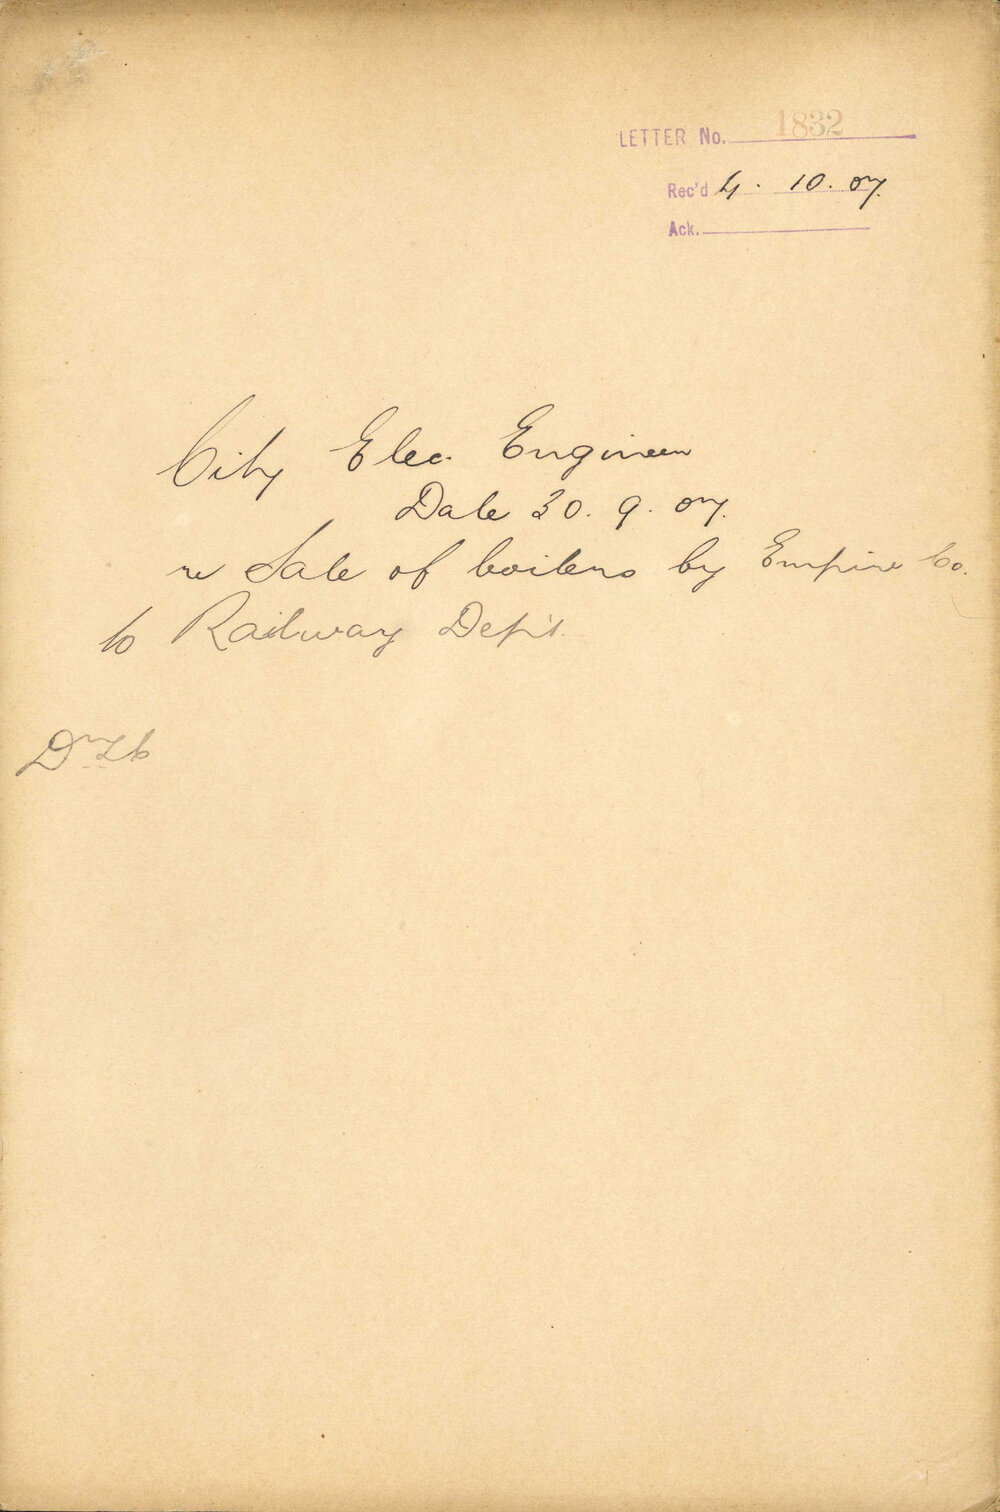 LETTER No. 1832
Rec'd 4. 10. 07.
Ack.
City Elec. Engineer
Date 30. 9. 07.
re Sale of boilers by Empire Co.
to Railway Dep't.